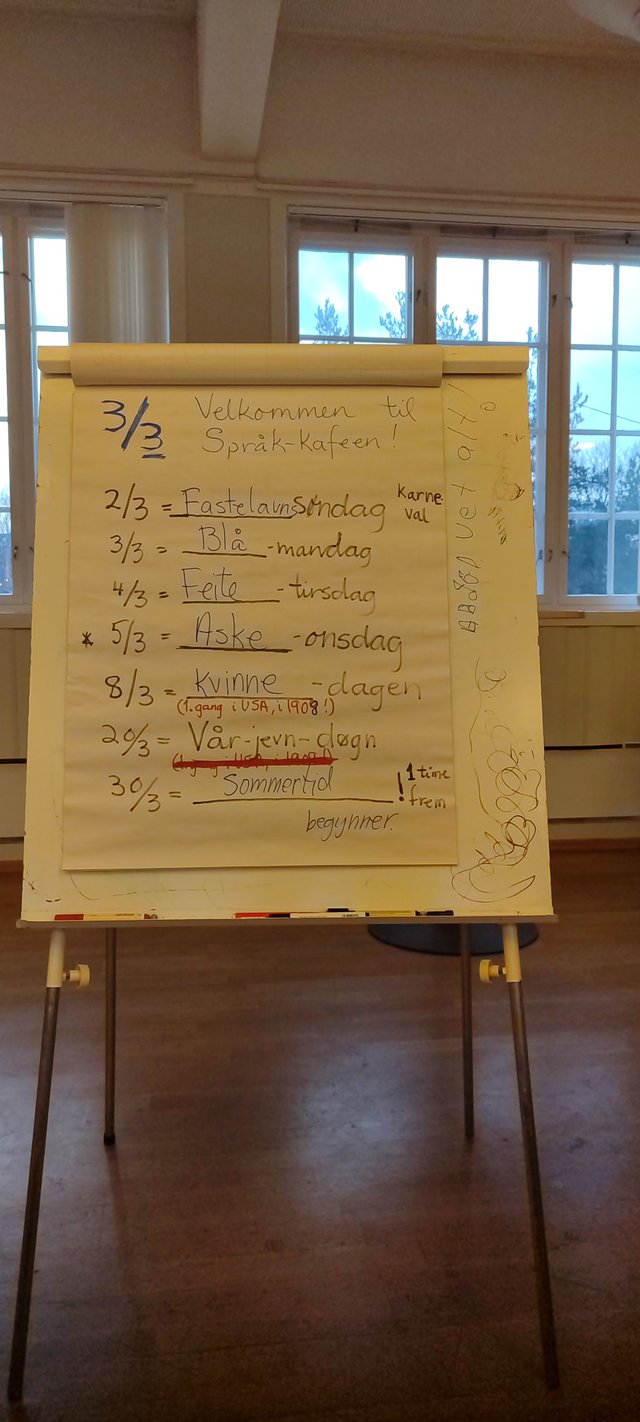 3/3 Velkommen til
Språk-kafeen!
2/3 = Fastelavnsøndag Karne-
val
3/3 = Blå -mandag
4/3 = Feite -tirsdag
* 5/3 = Aske -onsdag
8/3 = Kvinne -dagen
(1. gang i USA, i 1908!)
20/3 = Vår-jevn-døgn
(1. gang i USA, i 1909!)
30/3 = Sommertid ! 1 time
frem
begynner.